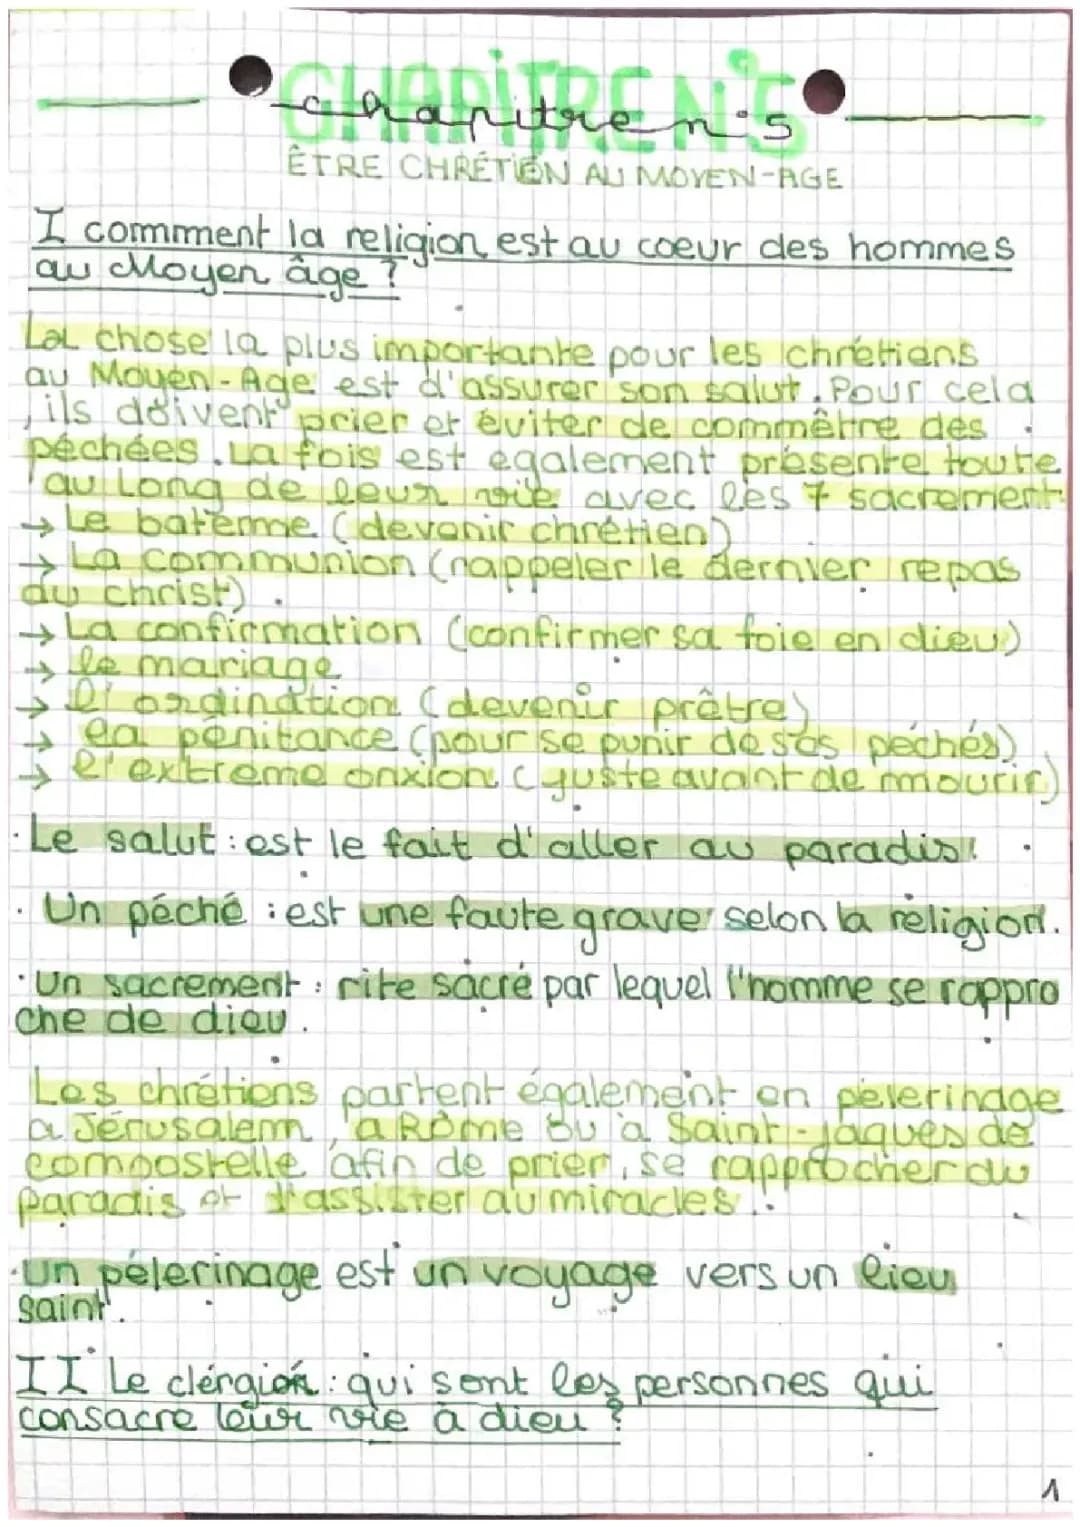 CHAPITRE N°5
chapitre n°5
ÊTRE CHRÉTIEN AU MOYEN-AGE
I commment la religion est au coeur des hommes
au Moyen âge ?
La chose la plus importante pour les chrétiens
au Moyen-Age est d'assurer son salut. Pour cela
, ils doivent prier et éviter de commêttre des
péchées. La fois est également présente toute
au Long de leur vie avec les 7 sacrement
→ Le batême (devenir chrétien)
→ La communion (rappeler le dernier repas
du christ).
→ La confirmation (confirmer sa foie en dieu)
→ le mariage
→ l'ordination (devenir prêtre)
→ la pénitance (pour se punir de ses péchés)
→ l'extreme onxion (juste avant de mourir)
· Le salut : est le fait d'aller au paradis.
· Un péché : est une faute grave selon la religion.
· Un sacrement : rite sacré par lequel l'homme se rappro
che de dieu.
Les chrétiens partent également en pèlerinage
a Jérusalem, à Rome ou à Saint-Jaques de
compostelle afin de prier, se rapprocher du
paradis et d'assister au miracles.
· un pélerinage est un voyage vers un lieu
saint.
II Le clérgion : qui sont les personnes qui
consacre leur vie à dieu ?
1